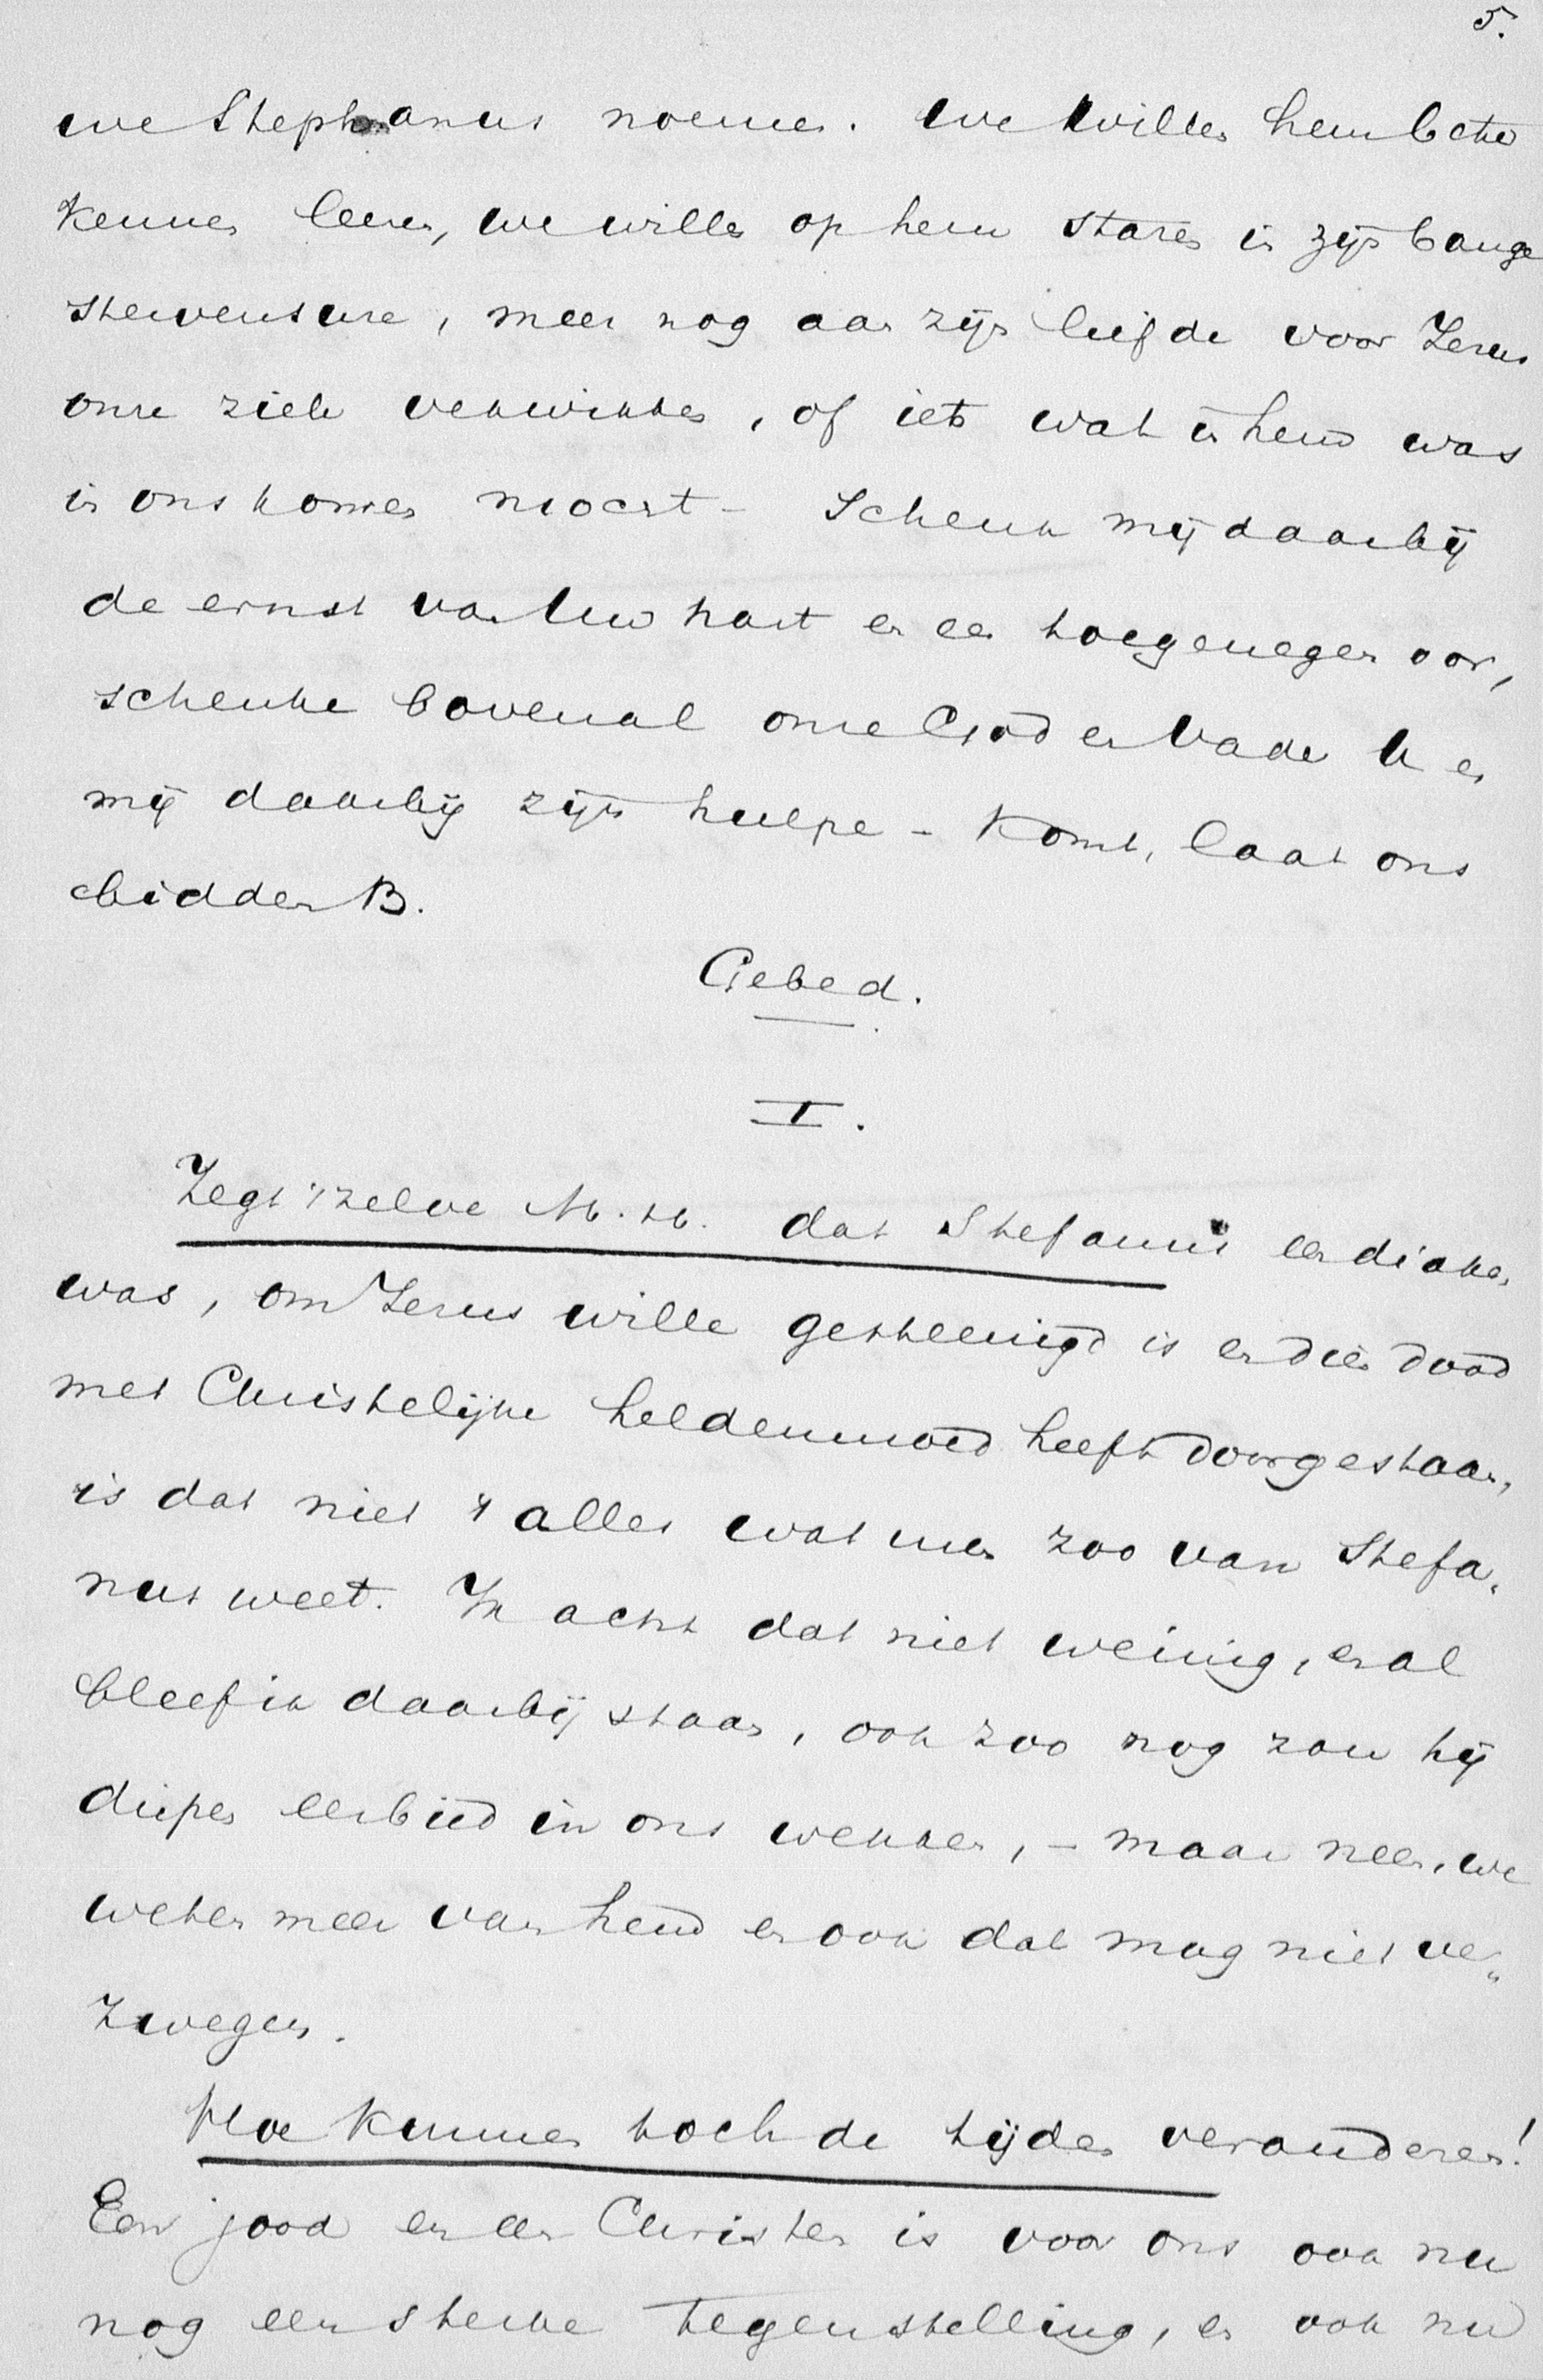 5.
we Stephanus noemen. We willen hem beter
kennen leeren, we willen op hem staren in zijn bange
stervensure, meer nog aan zijn liefde voor Jezus
onze ziele verkwikken, of iets wat in hem was
in ons komen mocht - Schenk mij daarbij
de ernst van Uw hart en een toegenegen oor,
schenke bovenal onze God en Vader U en
mij daarbij zijn hulpe - Komt, laat ons
bidden B.
Gebed.
I.
Zegt 'tzelve M. H. dat Stefanus een diaken
was, om Jezus wille gesteenigd is en dien dood
met Christelijke heldenmoed heeft doorgestaan,
is dat niet 't alles wat men zoo van Stefa„
nus weet. Ik acht dat niet weinig, en al
bleef ik daarbij staan, ook zoo nog zou hij
diepen eerbied in ons wekken, - maar neen, we
weten meer van hem en ook dat mag niet ver„
zwegen.
Hoe kunnen toch de tijden veranderen!
Een jood en een Christen is voor ons ook nu
nog een sterke tegenstelling, en ook nu